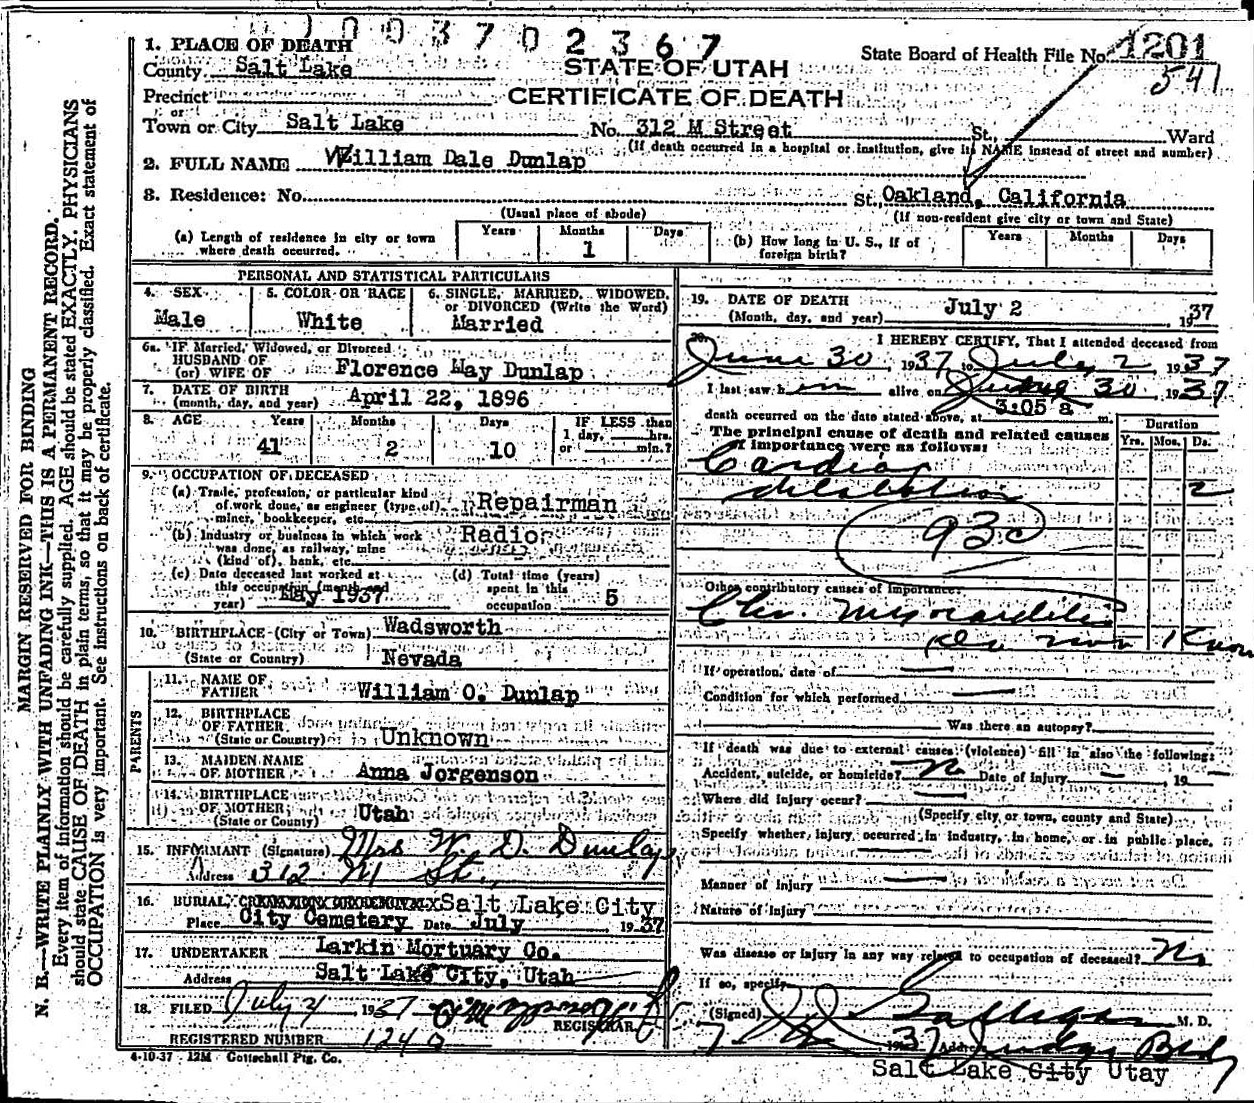 003702367
1. PLACE OF DEATH
County Salt Lake
STATE OF UTAH
State Board of Health File No. 1201
541
Precinct
CERTIFICATE OF DEATH
or
Town or City Salt Lake No. 312 M Street St. Ward
(If death occurred in a hospital or institution, give its NAME instead of street and number)
2. FULL NAME William Dale Dunlap
3. Residence: No. St. Oakland, California
(Usual place of abode) (If non-resident give city or town and State)
(a) Length of residence in city or town where death occurred. Years Months 1 Days
(b) How long in U. S., if of foreign birth? Years Months Days
PERSONAL AND STATISTICAL PARTICULARS
4. SEX Male
5. COLOR OR RACE White
6. SINGLE, MARRIED, WIDOWED, or DIVORCED (Write the Word) Married
6a. IF Married, Widowed, or Divorced
HUSBAND OF
(or) WIFE OF Florence May Dunlap
7. DATE OF BIRTH
(month, day, and year) April 22, 1896
8. AGE Years 41 Months 2 Days 10 IF LESS than 1 day, hrs. or min.?
9. OCCUPATION OF DECEASED
(a) Trade, profession, or particular kind
of work done, as engineer (type of),
miner, bookkeeper, etc. Repairman
(b) Industry or business in which work
was done, as railway, mine
(kind of), bank, etc. Radio
(c) Date deceased last worked at
this occupation (month and
year) May 1937
(d) Total time (years)
spent in this
occupation 5
10. BIRTHPLACE (City or Town) Wadsworth
(State or Country) Nevada
PARENTS
11. NAME OF
FATHER William O. Dunlap
12. BIRTHPLACE
OF FATHER
(State or Country) Unknown
13. MAIDEN NAME
OF MOTHER Anna Jorgenson
14. BIRTHPLACE
OF MOTHER
(State or Country) Utah
15. INFORMANT (Signature) Mrs W. D. Dunlap
Address 312 M St.
16. BURIAL, Salt Lake City
Place City Cemetery Date July 1937
17. UNDERTAKER Larkin Mortuary Co.
Address Salt Lake City, Utah
18. FILED July 1937
REGISTRAR
REGISTERED NUMBER 124
4-10-37 12M Gottschall Ptg. Co.
19. DATE OF DEATH
(Month, day, and year) July 2, 1937
20. I HEREBY CERTIFY, That I attended deceased from
June 30 1937 to July 2, 1937
I last saw him alive on June 30 1937
death occurred on the date stated above, at 3:05 a m.
The principal cause of death and related causes
of importance were as follows:
Duration
Yrs. Mos. Ds.
Cardiac
dilatation 2
93c
Other contributory causes of importance:
Chr. Myocarditis
Know
If operation, date of
Condition for which performed
Was there an autopsy?
If death was due to external causes (violence) fill in also the following:
Accident, suicide, or homicide? No Date of injury 19
Where did injury occur?
(Specify city or town, county and State)
Specify whether injury occurred in industry, in home, or in public place.
Manner of injury
Nature of injury
Was disease or injury in any way related to occupation of deceased? No
If so, specify
(Signed) M. D.
1937 Address Judge Bldg
Salt Lake City Utay
MARGIN RESERVED FOR BINDING
N. B.—WRITE PLAINLY WITH UNFADING INK—THIS IS A PERMANENT RECORD.
Every item of information should be carefully supplied. AGE should be stated EXACTLY. PHYSICIANS
should state CAUSE OF DEATH in plain terms, so that it may be properly classified. Exact statement of
OCCUPATION is very important. See instructions on back of certificate.